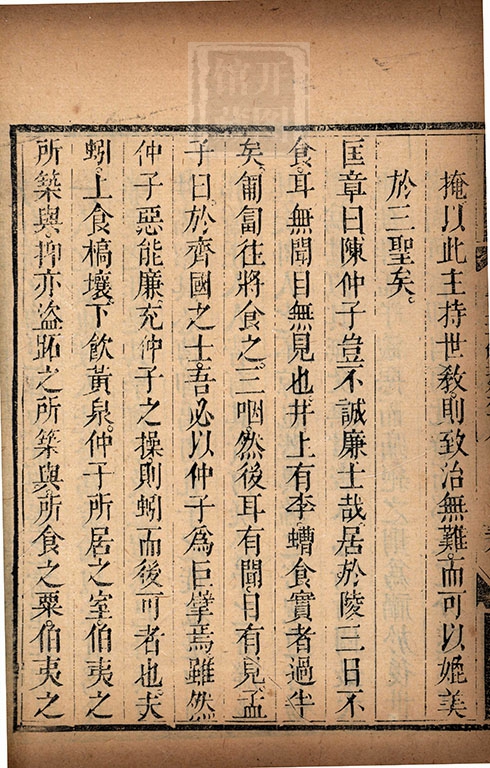 掩以此主持世教則致治無難而可以媲美
於三聖矣。
匡章曰陳仲子豈不誠廉士哉居於陵三日不
食。耳無聞目無見也。井上有李。螬食實者過半
矣。匍匐往將食之。三咽。然後耳有聞。目有見。孟
子曰。於齊國之士。吾必以仲子為巨擘焉雖然
仲子惡能廉充仲子之操則蚓而後可者也。夫
蚓。上食槁壤。下飲黃泉。仲子所居之室。伯夷之
所築與。抑亦盜跖之所築與。所食之粟。伯夷之